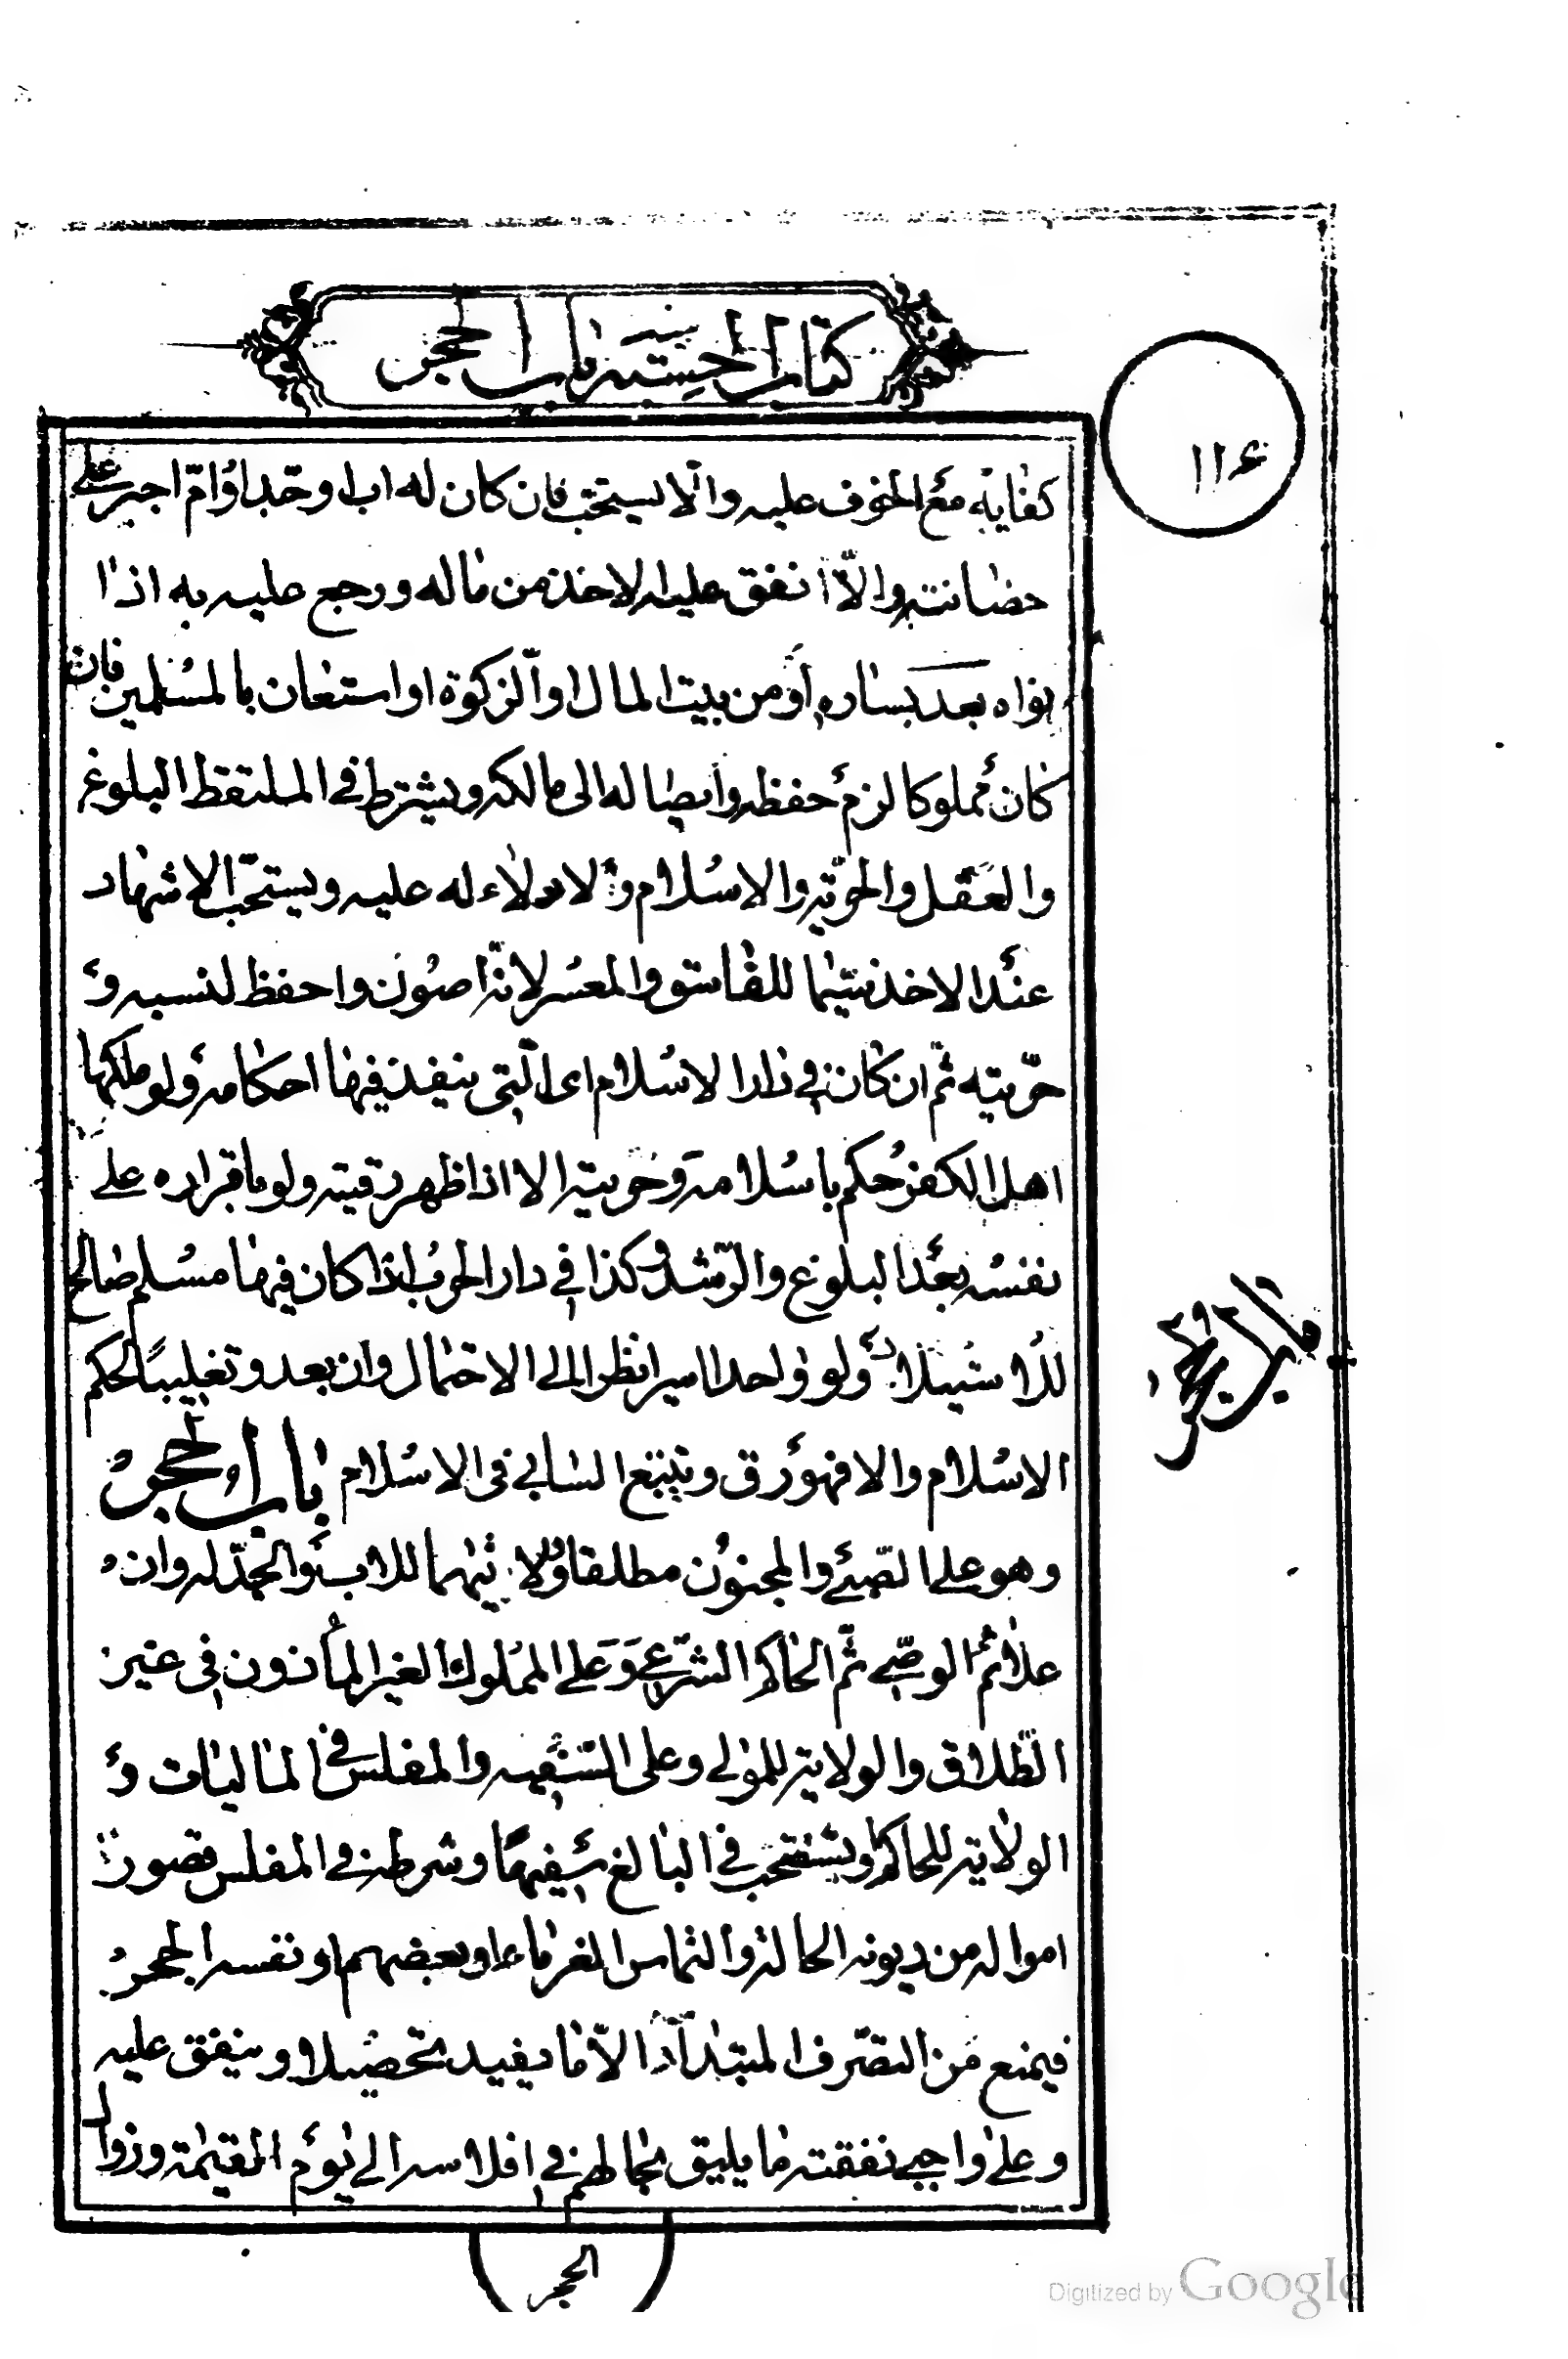 كتاب الحسبة باب الحجر
١١۶
كفاية مع الخوف عليه والّا يستحبّ فان كان له اب او جدّ او امّ اجبر على
حضانته والّا انفق عليه الاخذ من ماله ورجع عليه به اذا
نواه بعد يساره او من بيت المال او الزكوة او استعان بالمسلمين فان
كان مملوكا لزم حفظه وايصاله الى مالكه ويشترط في الملتقط البلوغ
والعقل والحرّية والاسلام و لا ولاء له عليه ويستحبّ الاشهاد
عند الاخذ سيّما للفاسق والمعسر لانّه اصون واحفظ لنسبه و
حرّيته ثمّ ان كان في دار الاسلام اى الّتى ينفذ فيها احكامه ولو ملكها
اهل الكفر حكم باسلامه وحريته الا اذا ظهر رقيته ولو باقراره على
نفسه بعد البلوغ والرّشد وكذا في دار الحرب اذا كان فيها مسلم صالح
للاستيلاد ولو واحدا اسيرا نظرا الى الاحتمال وان بعد وتغليبًا لحكم
الاسلام والا فهو رق ويتبع السابى فى الاسلام باب الحجر
وهو على الصّبي والمجنون مطلقا وولايتهما للاب والجدّ له وان
علا ثم الوصّى ثمّ الحاكم الشّرعى وعلى المملوك الغير المأذون في غير
الطّلاق والولاية للمولى وعلى السّفيه والمفلس في الماليات و
الولاية للحاكم ويستصحب في البالغ سفيهًا وشرطه في المفلس قصور
امواله من ديونه الحالة والتماس الغرماء او بعضهم او نفسه الحجر
فيمنع من التصّرف المبتدأ الّا ما يفيد تحصيلا وينفق عليه
وعلى واجبى نفقته ما يليق بحالهم في افلاسه الى يوم القسمة وزوال
باب الحجر
الحجر
Digitized by Google